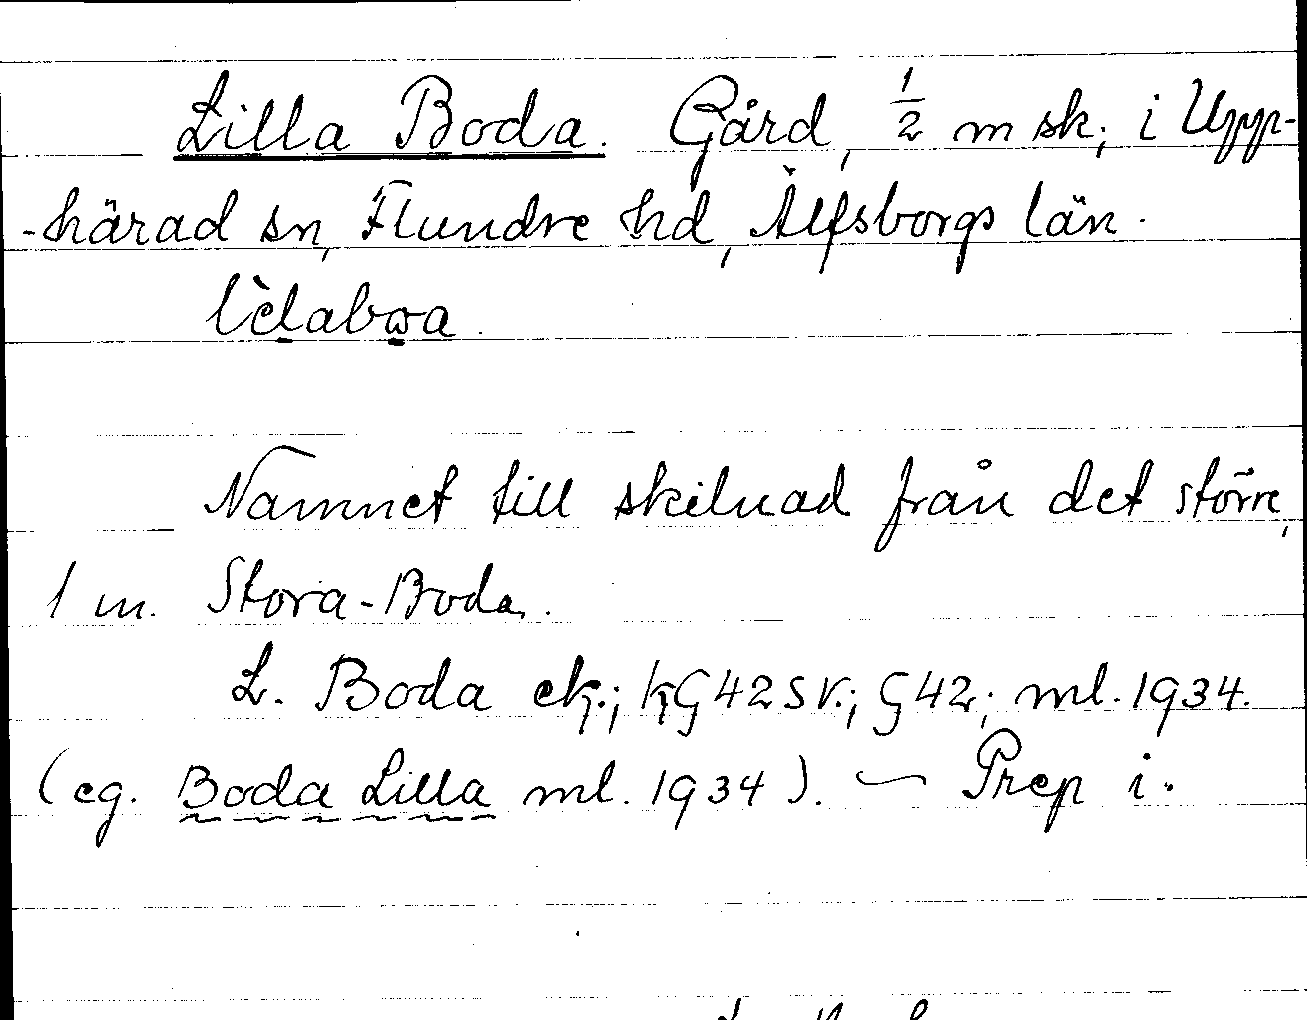 Lilla Boda. Gård, ½ m sk; i Upp-
-härad sn, Flundre hd, Älfsborgs län.
Namnet till skilnad från det större,
1 m. Stora-Boda.
L. Boda ek.; kG42SV.; G42; ml. 1934.
(eg. Boda Lilla ml. 1934). — Prep i.